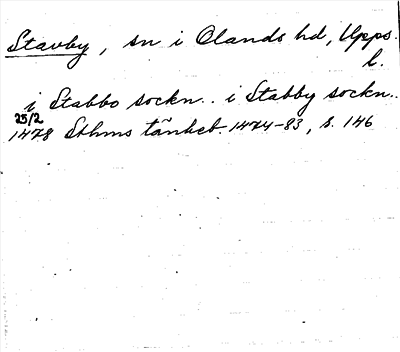 Stavby, sn i Olands hd, Upps.
l.
i Stabbo sockn.. i Stabby sockn..
25/2
1478 Sthms tänkeb. 1474-83, s. 146